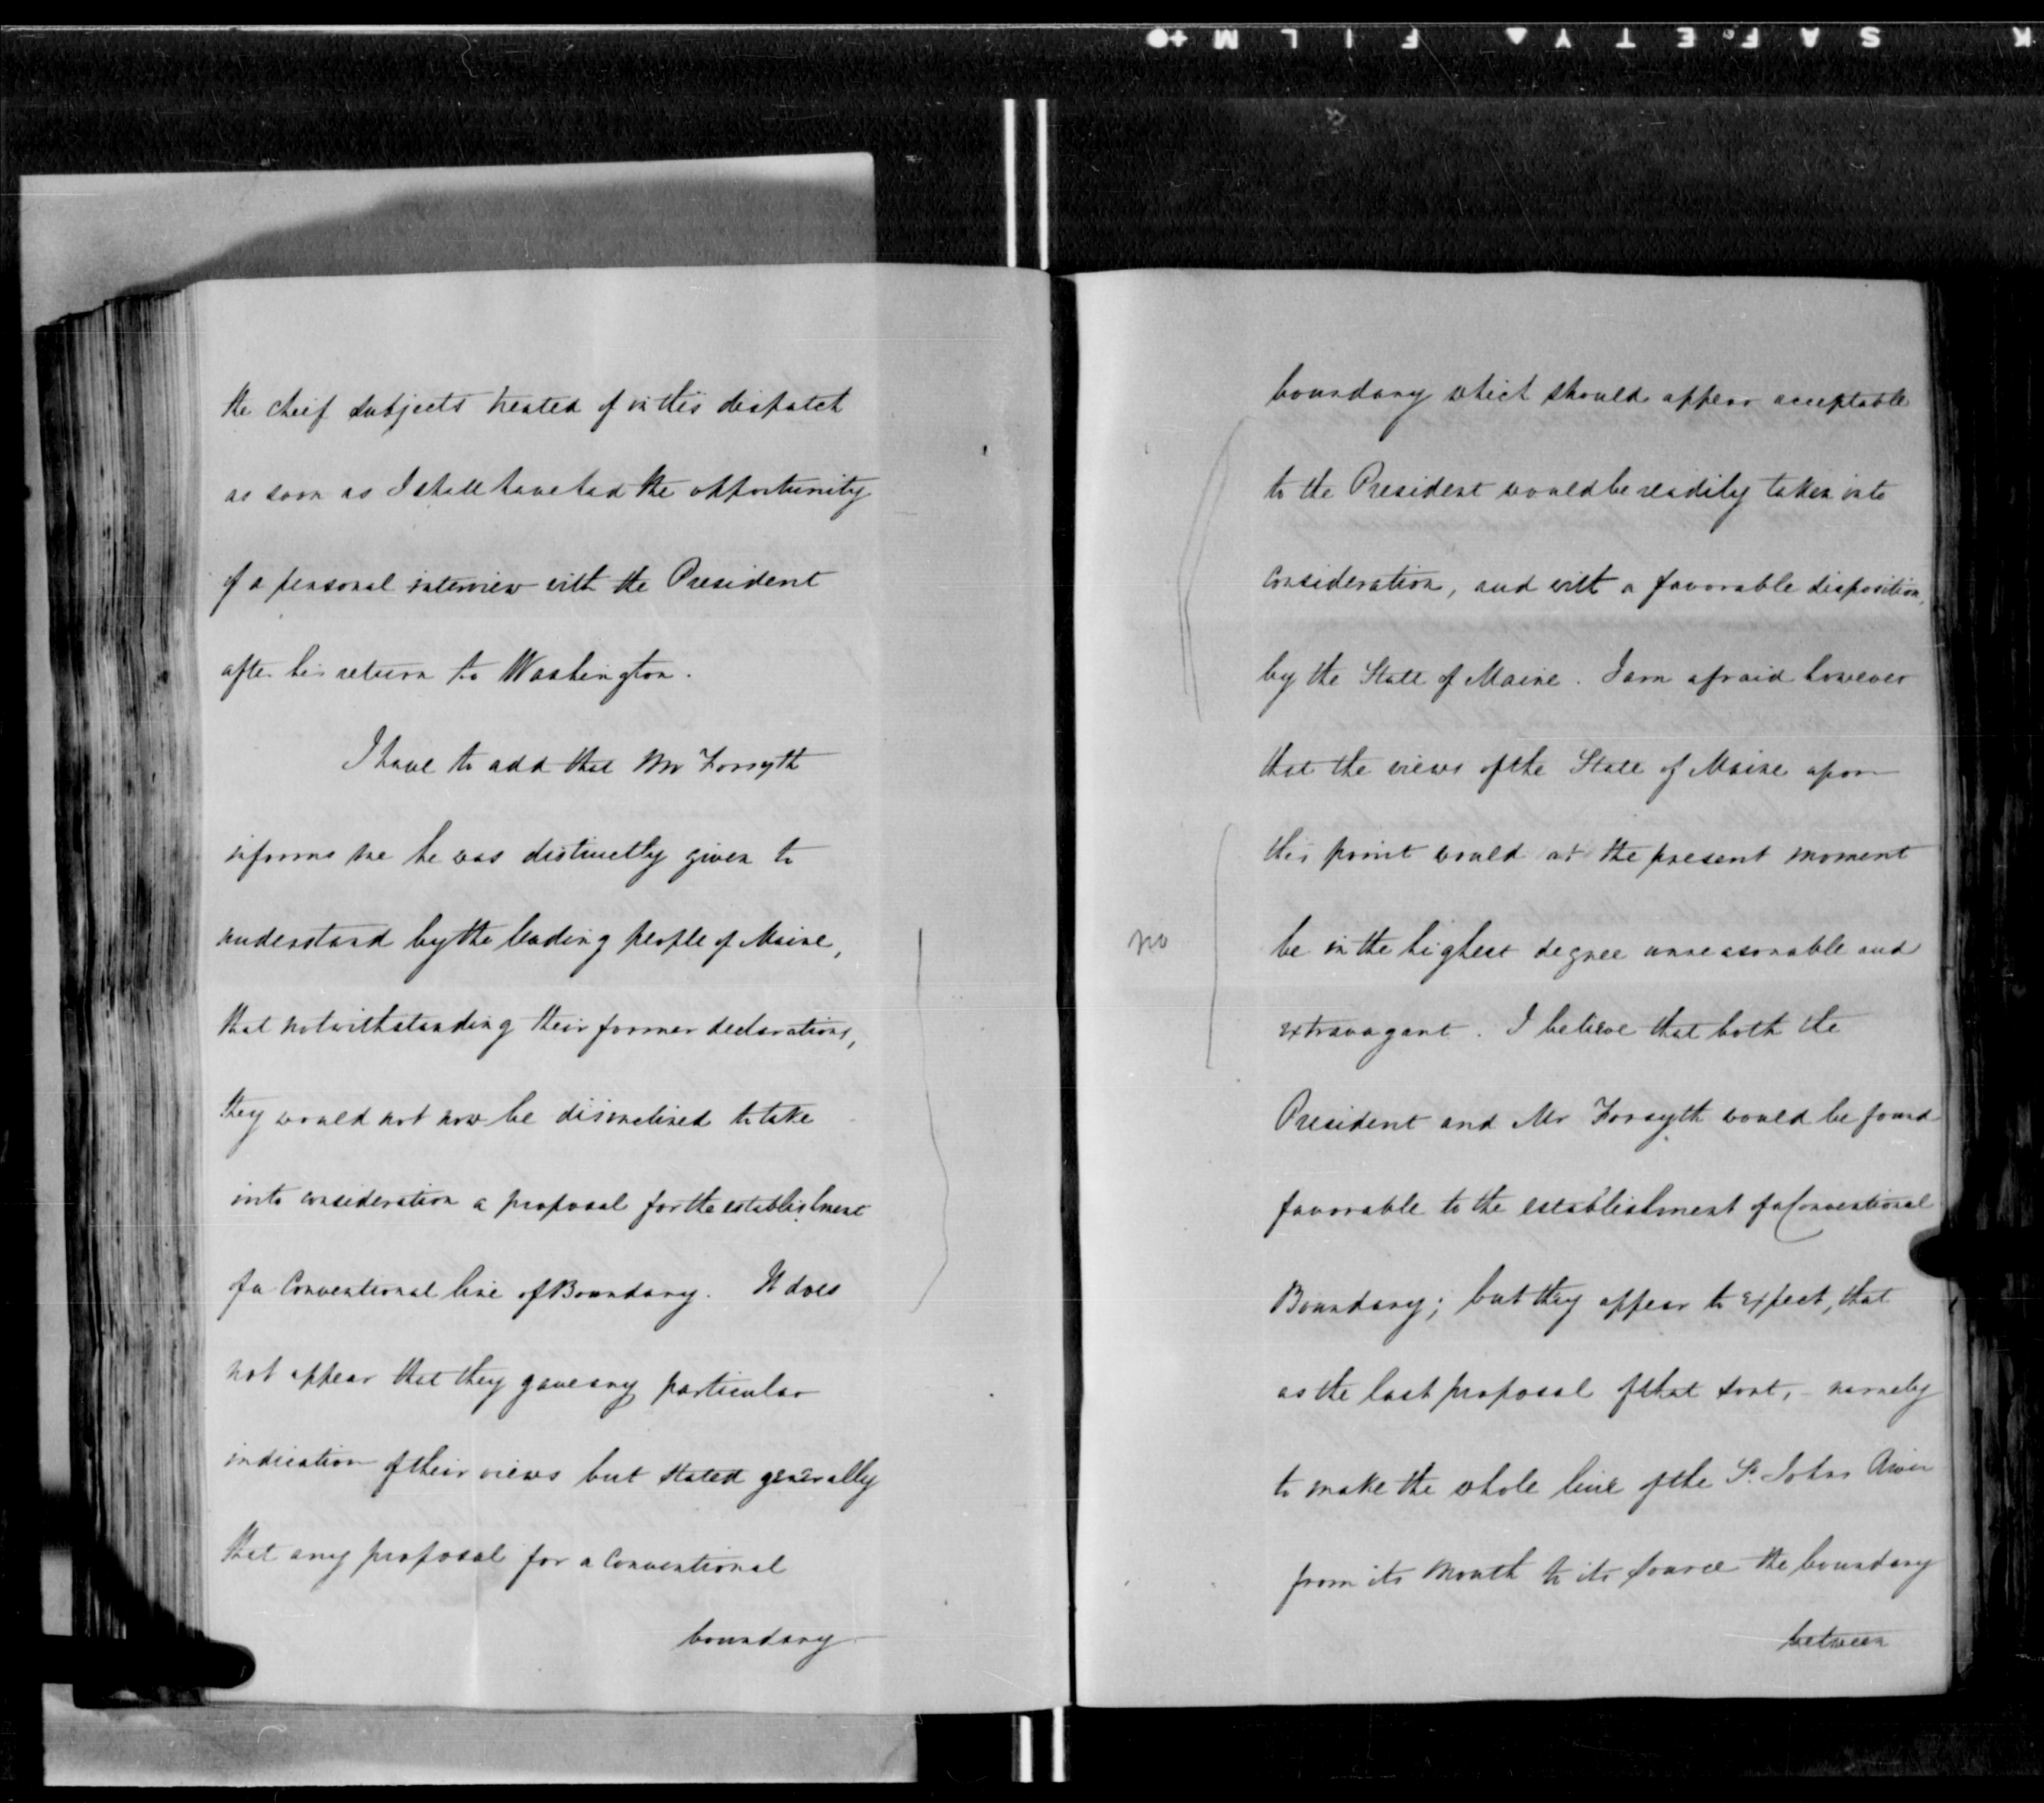 K SAFETY FILM
the cheif subjects treated of in this dispatch
as soon as I shall have had the opportunity
of a personal interview with the President
after his return to Washington.
I have to add that Mr Forsyth
informs me he was distinctly given to
understand by the leading people of Maine,
that notwithstanding their former declarations,
they would not now be disinclined to take
into consideration a proposal for the establishment
of a Conventional line of Boundary. It does
not appear that they gave any particular
indication of their views but stated generally
that any proposal for a Conventional
boundary
boundary which should appear acceptable
to the President would be readily taken into
consideration, and with a favorable disposition,
by the State of Maine. I am afraid however
that the views of the State of Maine upon
this point would at the present moment
no
be in the highest degree unreasonable and
extravagant. I believe that both the
President and Mr Forsyth would be found
favorable to the establishment of a Conventional
Boundary; but they appear to expect, that
as the last proposal of that sort, - namely
to make the whole line of the St. Johns River
from its mouth to its source the boundary
between